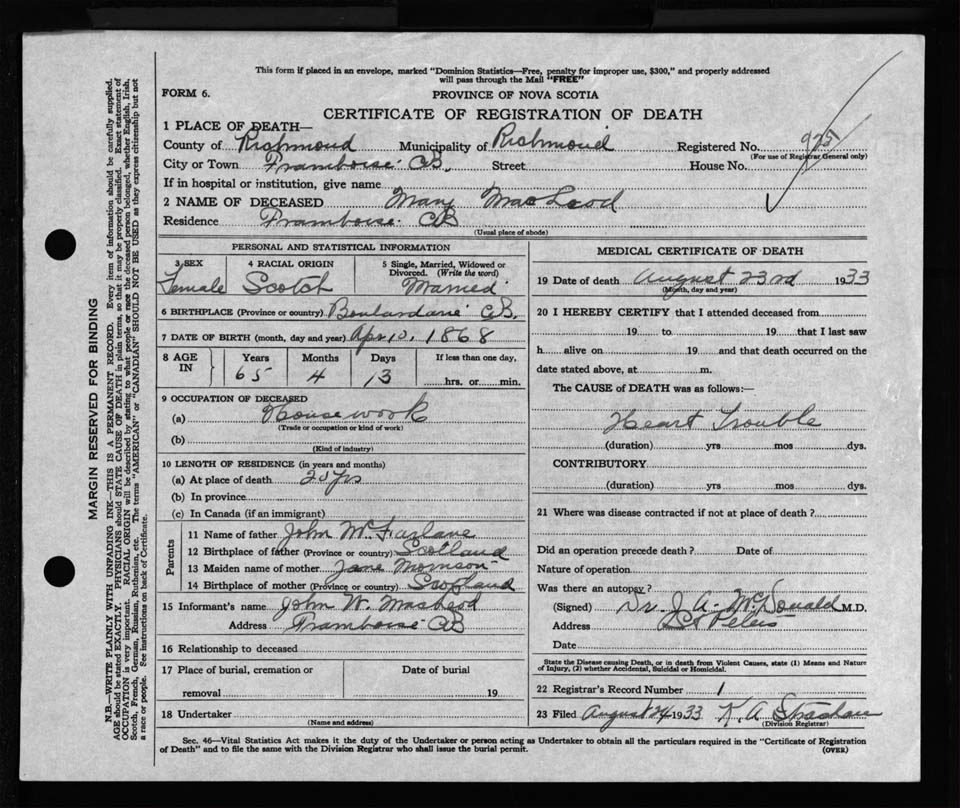 This form if placed in an envelope, marked "Dominion Statistics—Free, penalty for improper use, $300," and properly addressed
will pass through the Mail "FREE"
FORM 6. PROVINCE OF NOVA SCOTIA
CERTIFICATE OF REGISTRATION OF DEATH
1 PLACE OF DEATH—
County of Richmond Municipality of Richmond Registered No. 925
(For use of Registrar General only)
City or Town Framboise CB, Street House No.
If in hospital or institution, give name
2 NAME OF DECEASED Mary MacLeod
Residence Framboise CB
(Usual place of abode)
PERSONAL AND STATISTICAL INFORMATION
3 SEX 4 RACIAL ORIGIN 5 Single, Married, Widowed or
Divorced. (Write the word)
Female Scotch Married
6 BIRTHPLACE (Province or country) Boulardarie CB,
7 DATE OF BIRTH (month, day and year) Apr 10, 1868
8 AGE IN Years Months Days If less than one day,
65 4 13 hrs. or min.
9 OCCUPATION OF DECEASED
(a) Housework
(Trade or occupation or kind of work)
(b)
(Kind of industry)
10 LENGTH OF RESIDENCE (in years and months)
(a) At place of death yrs
(b) In province
(c) In Canada (if an immigrant)
Parents
11 Name of father John McFarlane
12 Birthplace of father (Province or country) Scotland
13 Maiden name of mother Jane Morrison
14 Birthplace of mother (Province or country) Scotland
15 Informant's name John W. MacLeod
Address Framboise CB
16 Relationship to deceased
17 Place of burial, cremation or Date of burial
removal 19
18 Undertaker
(Name and address)
MEDICAL CERTIFICATE OF DEATH
19 Date of death August 23rd 1933
(Month, day and year)
20 I HEREBY CERTIFY that I attended deceased from
19 to 19 that I last saw
h alive on 19 and that death occurred on the
date stated above, at m.
The CAUSE of DEATH was as follows:—
Heart Trouble
(duration) yrs mos dys.
CONTRIBUTORY
(duration) yrs mos dys.
21 Where was disease contracted if not at place of death?
Did an operation precede death? Date of
Nature of operation
Was there an autopsy?
(Signed) Dr. J. A. McDonald M.D.
Address St Peters
Date
State the Disease causing Death, or in death from Violent Causes, state (1) Means and Nature
of Injury, (2) whether Accidental, Suicidal or Homicidal.
22 Registrar's Record Number 1
23 Filed August 24 1933 K. A. Strachan
(Division Registrar)
Sec. 46—Vital Statistics Act makes it the duty of the Undertaker or person acting as Undertaker to obtain all the particulars required in the "Certificate of Registration
of Death" and to file the same with the Division Registrar who shall issue the burial permit. (OVER)
MARGIN RESERVED FOR BINDING
N.B.—WRITE PLAINLY WITH UNFADING INK—THIS IS A PERMANENT RECORD. Every item of information should be carefully supplied.
AGE should be stated EXACTLY. PHYSICIANS should STATE CAUSE OF DEATH in plain terms, so that it may be properly classified. Exact statement of
OCCUPATION is very important. RACIAL ORIGIN will be described by stating to what people or race the deceased person belonged, whether English, Irish,
Scotch, French, German, Russian, Ruthenian, etc. The terms "AMERICAN" or "CANADIAN" SHOULD NOT BE USED as they express citizenship but not
a race or people. See instructions on back of Certificate.